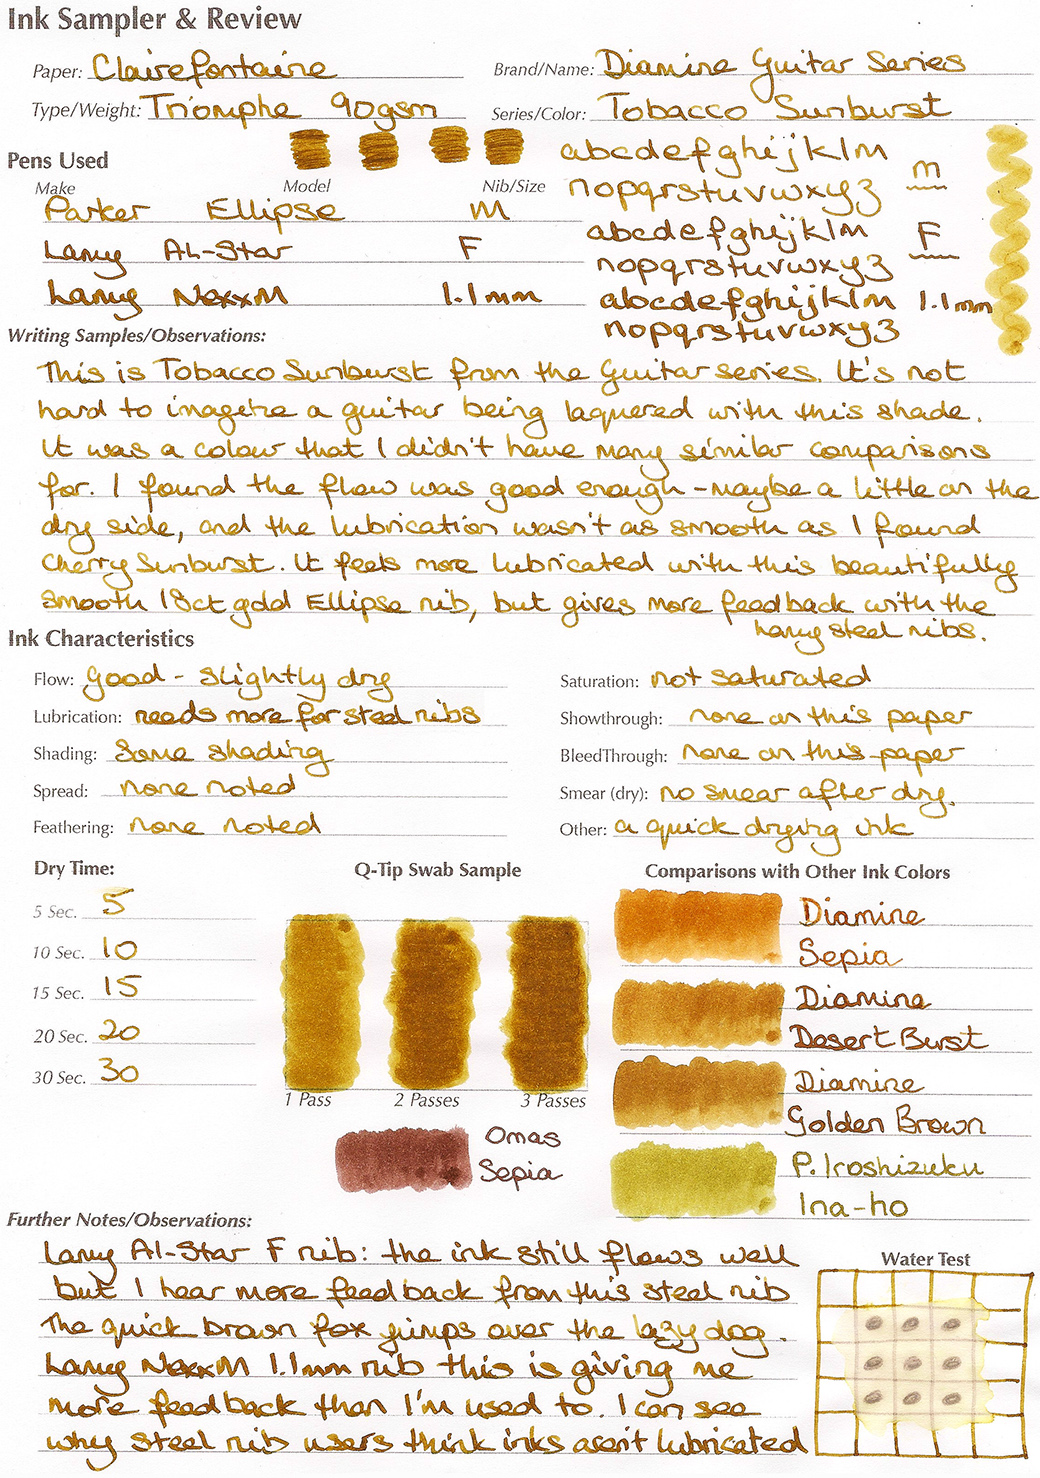 Ink Sampler & Review
Paper: Clairefontaine
Brand/Name: Diamine Guitar Series
Type/Weight: Triomphe 90gsm
Series/Color: Tobacco Sunburst
Pens Used
Make Model Nib/Size
Parker Ellipse M
Lamy Al-Star F
Lamy NexxM 1.1mm
abcdefghijklm
nopqrstuvwxyz
M
abcdefghijklm
nopqrstuvwxyz
F
abcdefghijklm
nopqrstuvwxyz
1.1mm
Writing Samples/Observations:
This is Tobacco Sunburst from the Guitar series. It's not
hard to imagine a guitar being laquered with this shade.
It was a colour that I didn't have many similar comparisons
for. I found the flow was good enough - maybe a little on the
dry side, and the lubrication wasn't as smooth as I found
Cherry Sunburst. It feels more lubricated with this beautifully
smooth 18ct gold Ellipse nib, but gives more feedback with the
Lamy steel nibs.
Ink Characteristics
Flow: Good - slightly dry
Lubrication: needs more for steel nibs
Shading: Some shading
Spread: none noted
Feathering: none noted
Saturation: not saturated
Showthrough: none on this paper
BleedThrough: none on this paper
Smear (dry): no smear after dry.
Other: a quick drying ink
Dry Time:
5 Sec. 5
10 Sec. 10
15 Sec. 15
20 Sec. 20
30 Sec. 30
Q-Tip Swab Sample
1 Pass 2 Passes 3 Passes
Omas
Sepia
Comparisons with Other Ink Colors
Diamine
Sepia
Diamine
Desert Burst
Diamine
Golden Brown
P. Iroshizuku
Ina-ho
Further Notes/Observations:
Lamy Al-Star F nib: the ink still flows well
but I hear more feedback from this steel nib
The quick brown fox jumps over the lazy dog.
Lamy NexxM 1.1mm nib this is giving me
more feedback than I'm used to. I can see
why steel nib users think inks aren't lubricated
Water Test